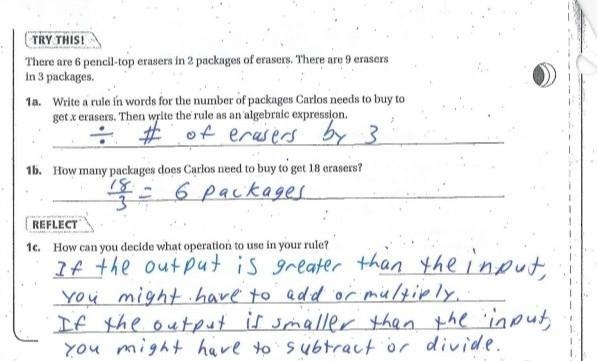 TRY THIS!
There are 6 pencil-top erasers in 2 packages of erasers. There are 9 erasers
in 3 packages.
1a. Write a rule in words for the number of packages Carlos needs to buy to
get x erasers. Then write the rule as an algebraic expression.
÷ # of erasers by 3
1b. How many packages does Carlos need to buy to get 18 erasers?
18/3 = 6 packages
REFLECT
1c. How can you decide what operation to use in your rule?
If the output is greater than the input,
you might have to add or multiply.
If the output is smaller than the input,
you might have to subtract or divide.